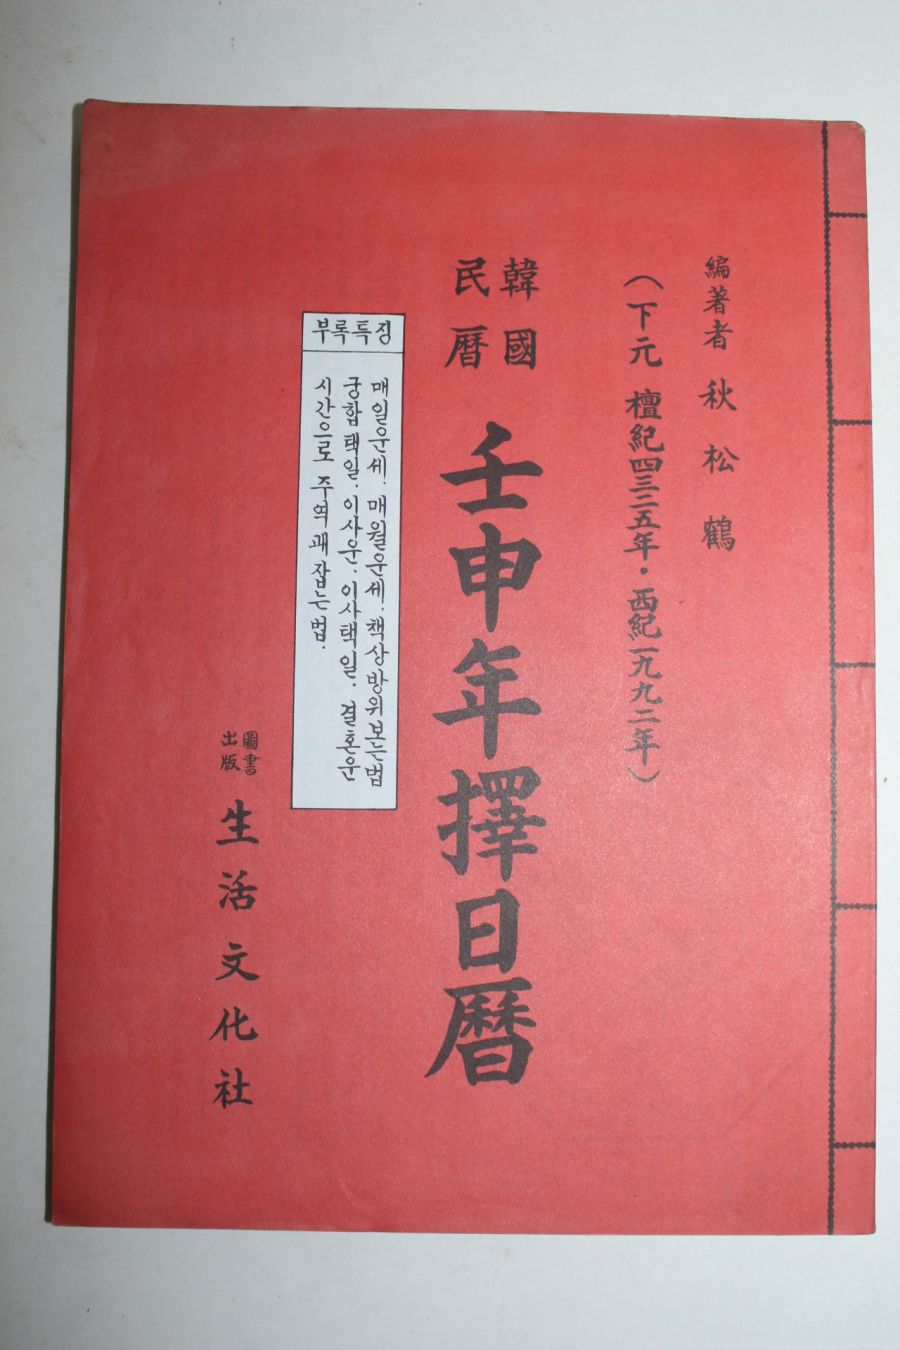 編著者 秋松鶴
(下元 檀紀四三二五年·西紀一九九二年)
韓國
民曆
壬申年擇日曆
부록특징
매일운세. 매월운세. 책상방위보는법
궁합택일. 이사운. 이사택일. 결혼운
시간으로 주역괘잡는법.
圖書
出版
生活文化社